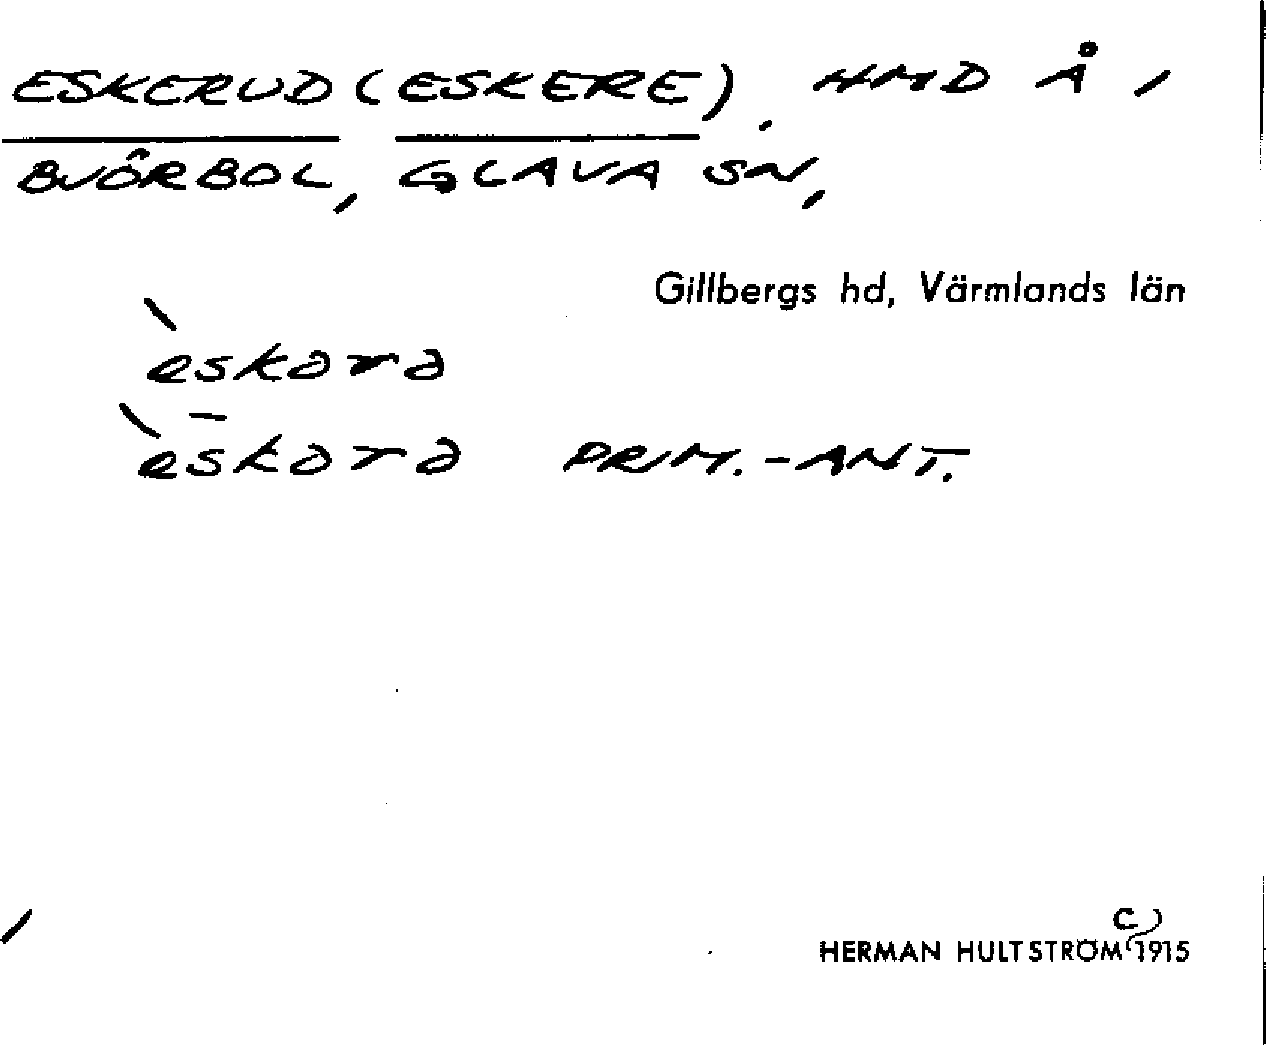 ESKERUD (ESKERE), HMD Å
BJÖRBOL, GLAVA SN,
Gillbergs hd, Värmlands län
̀eskərə
̀es̄kərə PRIM.-ANT.
HERMAN HULTSTRÖM C) 1915